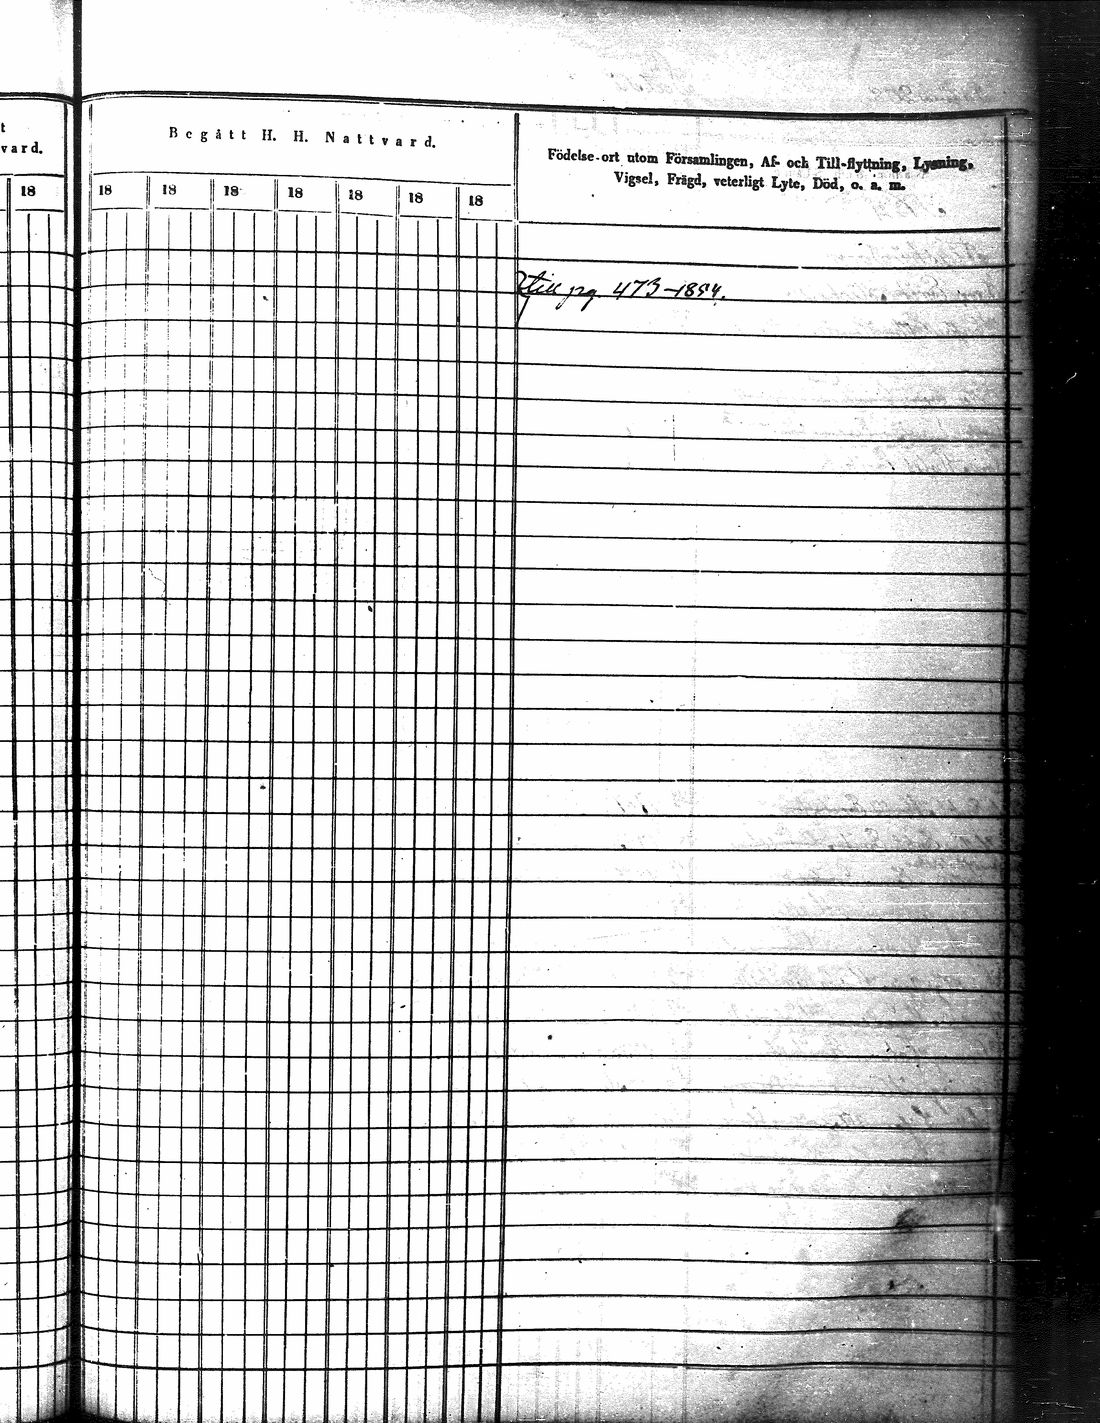 t
vard.
18
Begått H. H. Nattvard.
18 18 18 18 18 18 18
Födelse-ort utom Församlingen, Af- och Till-flyttning, Lysning,
Vigsel, Frägd, veterligt Lyte, Död, o. a. m.
till pg 473-1854.